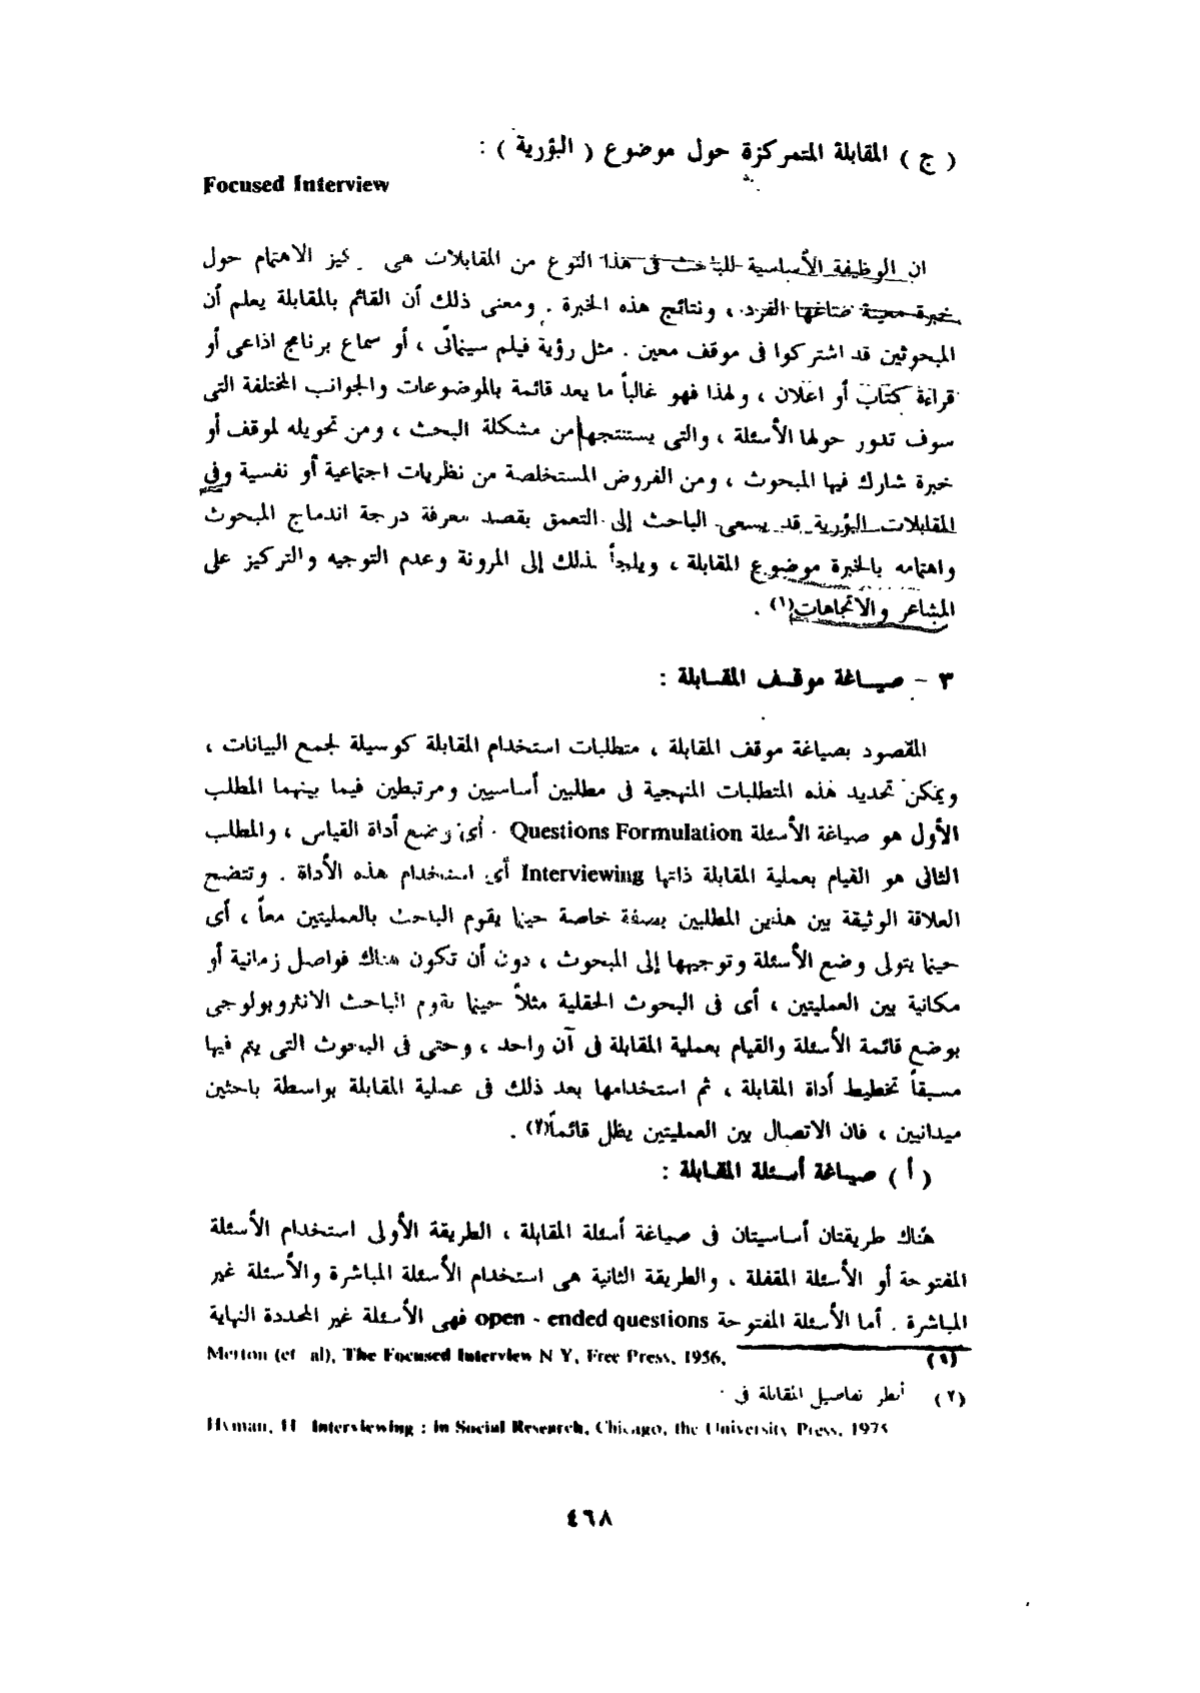 ( ج ) المقابلة المتمركزة حول موضوع ( البؤرية ) :
Focused Interview
ان الوظيفة الأساسية للباحث فى هذا النوع من المقابلات هى كيز الاهتمام حول
خبرة معينة صاغها الفرد ، ونتائج هذه الخبرة . ومعنى ذلك أن القائم بالمقابلة يعلم أن
المبحوثين قد اشتركوا فى موقف معين . مثل رؤية فيلم سينمائى ، أو سماع برنامج اذاعى أو
قراءة كتاب أو اعلان ، ولهذا فهو غالباً ما يعد قائمة بالموضوعات والجوانب المختلفة التى
سوف تدور حولها الأسئلة ، والتى يستنتجها من مشكلة البحث ، ومن تحويله لموقف أو
خبرة شارك فيها المبحوث ، ومن الفروض المستخلصة من نظريات اجتماعية أو نفسية وفى
المقابلات البؤرية قد يسعى الباحث إلى التعمق بقصد معرفة درجة اندماج المبحوث
واهتمامه بالخبرة موضوع المقابلة ، ويلجأ لذلك إلى المرونة وعدم التوجيه والتركيز على
المشاعر والاتجاهات(١) .
٣ - صياغة موقف المقابلة :
المقصود بصياغة موقف المقابلة ، متطلبات استخدام المقابلة كوسيلة لجمع البيانات ،
ويمكن تحديد هذه المتطلبات المنهجية فى مطلبين أساسيين ومرتبطين فيما بينهما المطلب
الأول هو صياغة الأسئلة Questions Formulation . أى وضع أداة القياس ، والمطلب
الثانى هو القيام بعملية المقابلة ذاتها Interviewing أى استخدام هذه الأداة . وتتضح
العلاقة الوثيقة بين هذين المطلبين بصفة خاصة حينما يقوم الباحث بالعمليتين معاً ، أى
حينما يتولى وضع الأسئلة وتوجيهها إلى المبحوث ، دون أن تكون هناك فواصل زمانية أو
مكانية بين العمليتين ، أى فى البحوث الحقلية مثلاً حينما يقوم الباحث الانثروبولوجى
بوضع قائمة الأسئلة والقيام بعملية المقابلة فى آن واحد ، وحتى فى البحوث التى يتم فيها
مسبقاً تخطيط أداة المقابلة ، ثم استخدامها بعد ذلك فى عملية المقابلة بواسطة باحثين
ميدانيين ، فان الاتصال بين العمليتين يظل قائماً(٢) .
( أ ) صياغة أسئلة المقابلة :
هناك طريقتان أساسيتان فى صياغة أسئلة المقابلة ، الطريقة الأولى استخدام الأسئلة
المفتوحة أو الأسئلة المقفلة ، والطريقة الثانية هى استخدام الأسئلة المباشرة والأسئلة غير
المباشرة . أما الأسئلة المفتوحة open - ended questions فهى الأسئلة غير المحددة النهاية
(١) Merton (et al), The Focused Interview N Y, Free Press, 1956,
(٢) أنظر تفاصيل المقابلة فى
Hyman, H Interviewing : in Social Research, Chicago, the University Press, 1975
٤٦٨